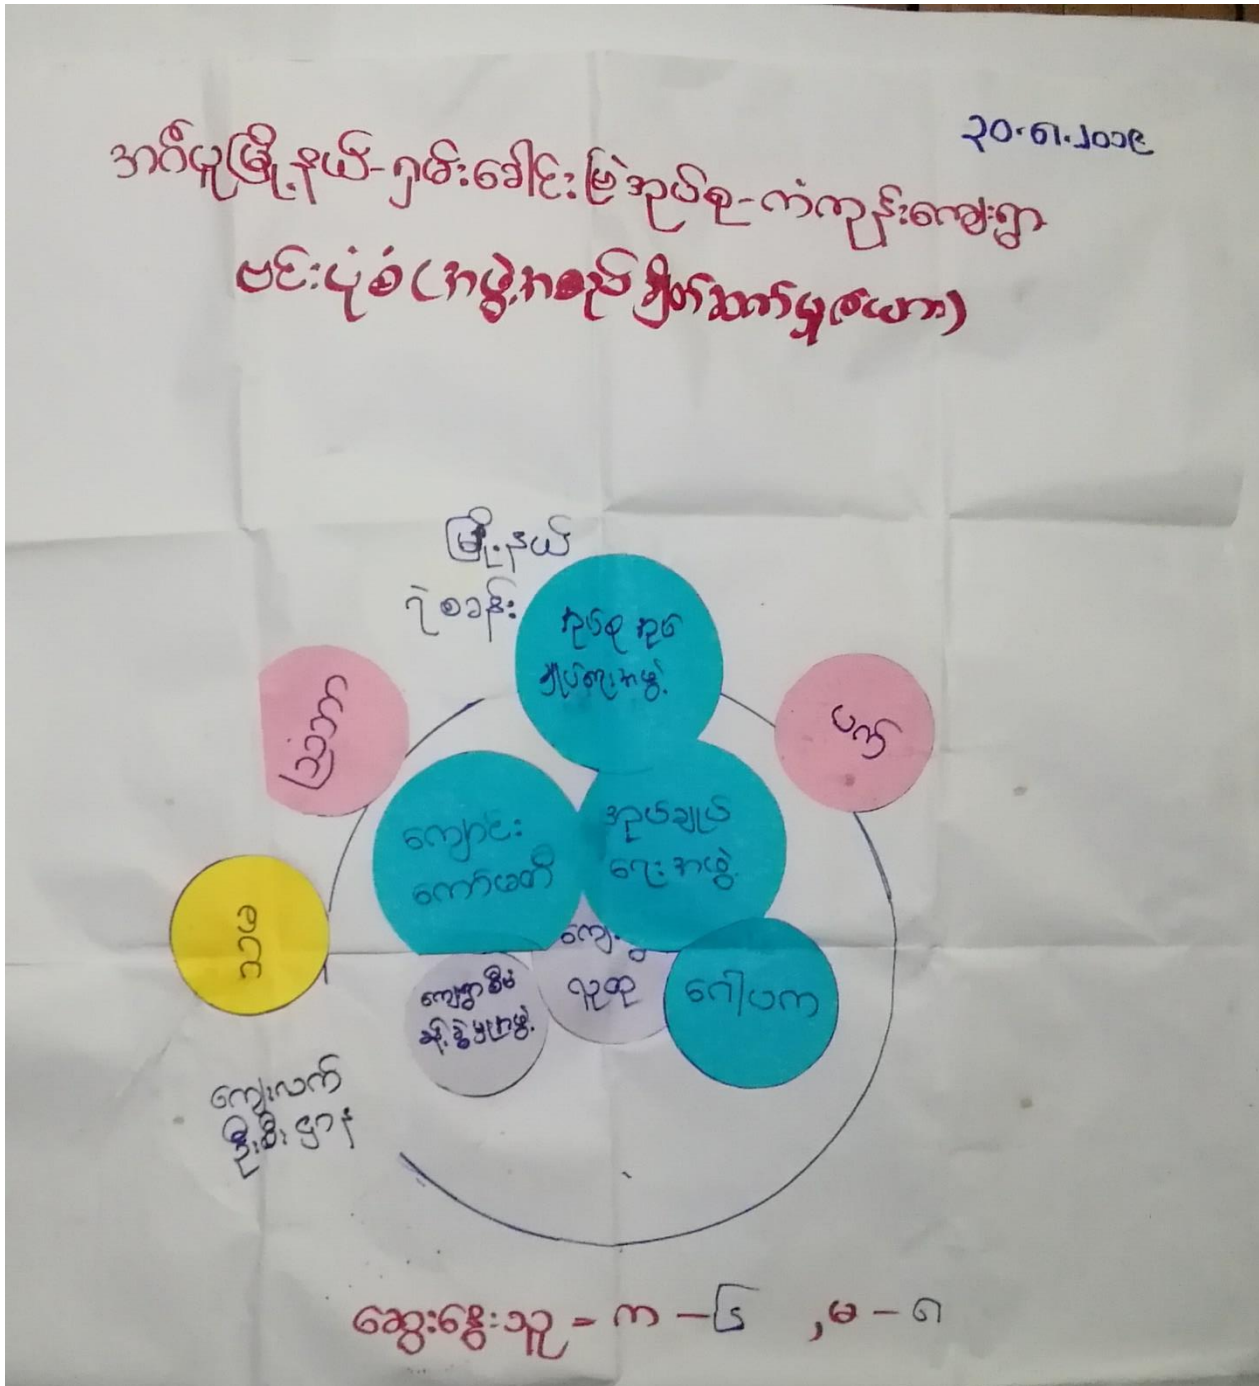 ၃၀.၈.၂၀၁၉
အင်္ဂပူမြို့နယ်-ရှမ်းခေါင်းမြဲအုပ်စု-ကံကုန်းကျေးရွာ
ဗင်းပုံစံ (အဖွဲ့အစည်းချိတ်ဆက်မှုဇယား)
မြို့နယ်
ရဲစခန်း
အုပ်စု အုပ်
ချုပ်ရေးအဖွဲ့
ပက်
ကျောင်း
ကော်မတီ
အုပ်ချုပ်
ရေးအဖွဲ့
ကျေးရွာ
လူထု
ကျေးရွာစီမံ
ခန့်ခွဲမှုအဖွဲ့
ဂေါပက
ကျေးလက်
ဦးစီးဌာန
ဆွေးနွေးသူ = က - ၆ , မ - ၈